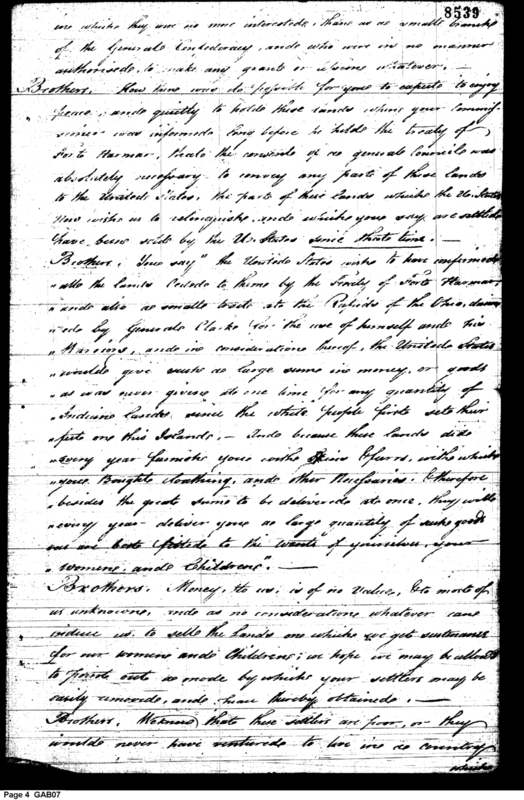 8539
in which they was no more interested, than as a small branch
of the General Confederacy, and who were in no manner
authorised, to make any grant or whatever. —
Brothers, How then was it possible for you to expect to enjoy
peace, and quietly to hold these lands when your Commis
sioner was informed long before he held the treaty of
Fort Harmar, that the consent of a general Council was
absolutely necessary to convey any part of these Lands
to the United States, the part of these lands which the U. States
Now wish us to relinquish, and which you say are settled
have been sold by the U. States since that time. —
Brothers, You say "the United States wish to have confirmed
"all the lands Ceded to them by the Treaty of Fort Harmar,
"and also a small tract at the Rapids of the Ohio, claim
"ed by General Clarke for the use of himself and his
"Warriors, and in consideration thereof, the United States
"would give such a large sum in money, or goods
"as was never given at one time for any quantity of
"Indian Lands, since the white people first set their
"foot on this Island. — And because these lands did
"every year furnish you with Skins & furrs, with which
"you Bought cloathing, and other Necessaries. & therefore
"besides the great sum to be delivered at once, they will
"every year deliver you a large quantity of such goods
as are best fitted to the wants of yourselves, your
"women, and Children". —
Brothers, Money, to us, is of no Value, & to most of
us unknown, and as no consideration whatever can
induce us to sell the Lands on which we get sustenance
for our women and Children; we hope we may be allowed
to point out a mode by which your settlers may be
easily removed, and peace thereby obtained. —
Brothers, We know that these settlers are poor, or they
would never have ventured to live in a country
which
Page 4 GAB07